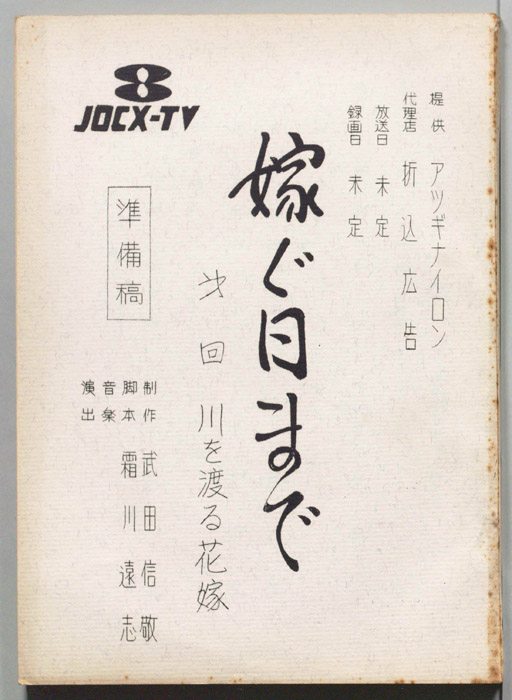 8
JOCX-TV
提供 アツギナイロン
代理店 折込広告
放送日 未定
録画日 未定
嫁ぐ日まで
才 回 川を渡る花嫁
準備稿
制作 武田信敬
脚本 霜川遠志
音楽
演出